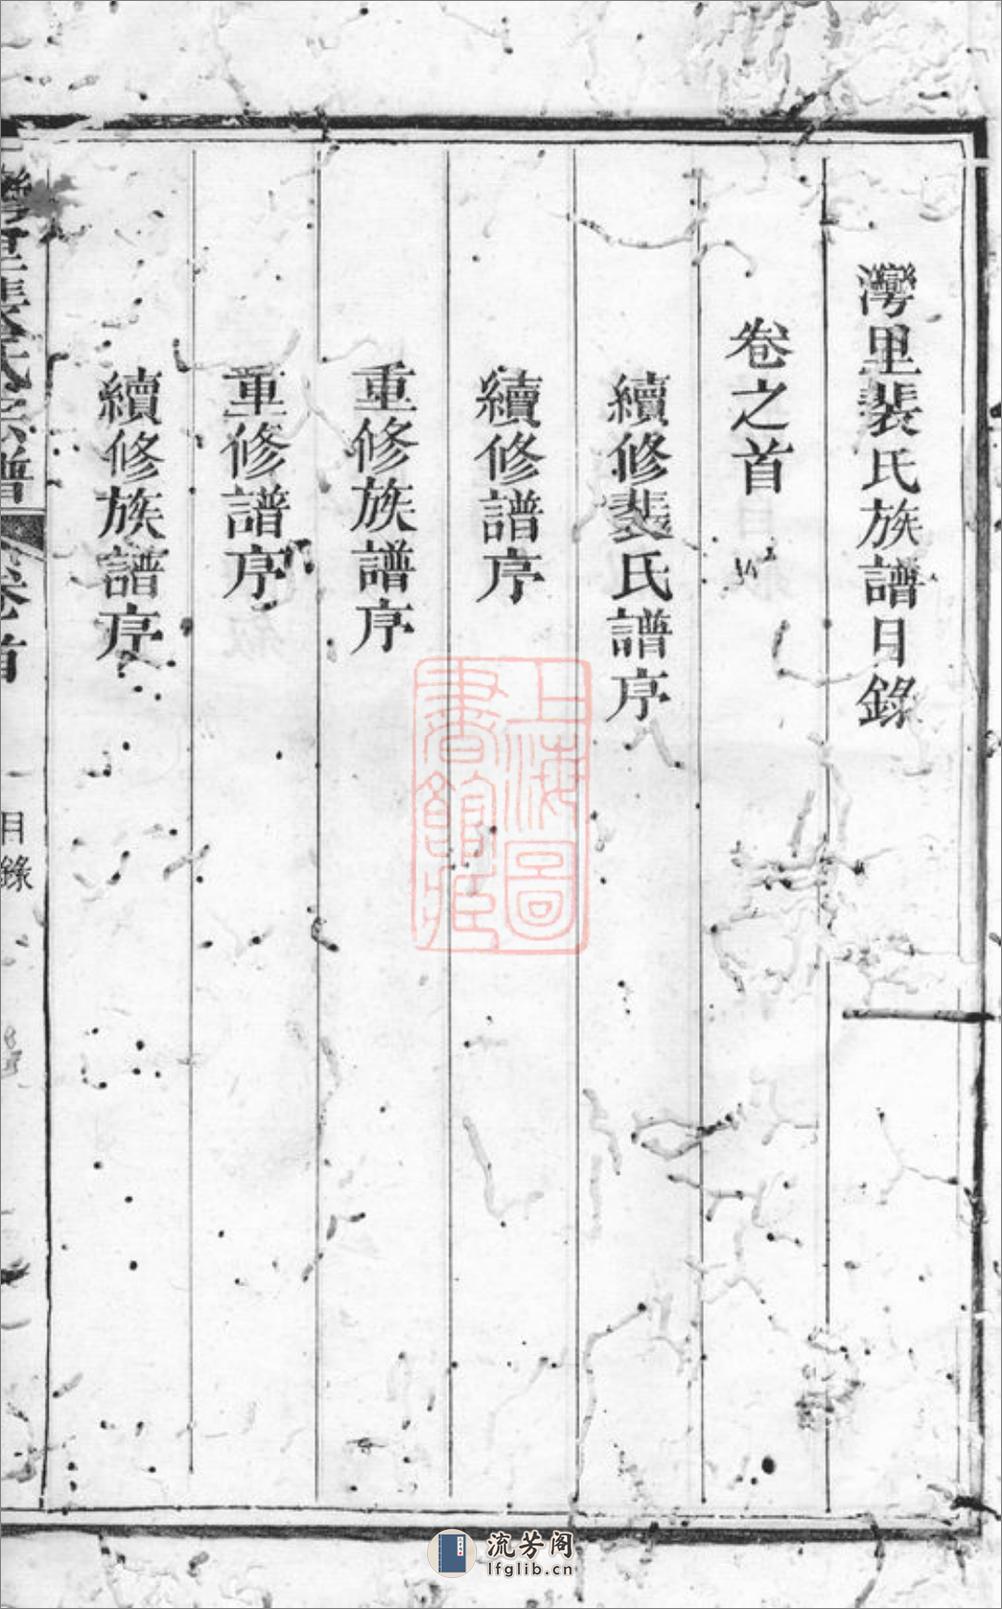 灣里裴氏族譜目錄
卷之首
續修裴氏譜序
續修譜序
重修族譜序
重修譜序
續修族譜序
灣里裴氏宗譜
卷首
一
目錄
上海圖書館藏
流芳阁
lfglib.cn